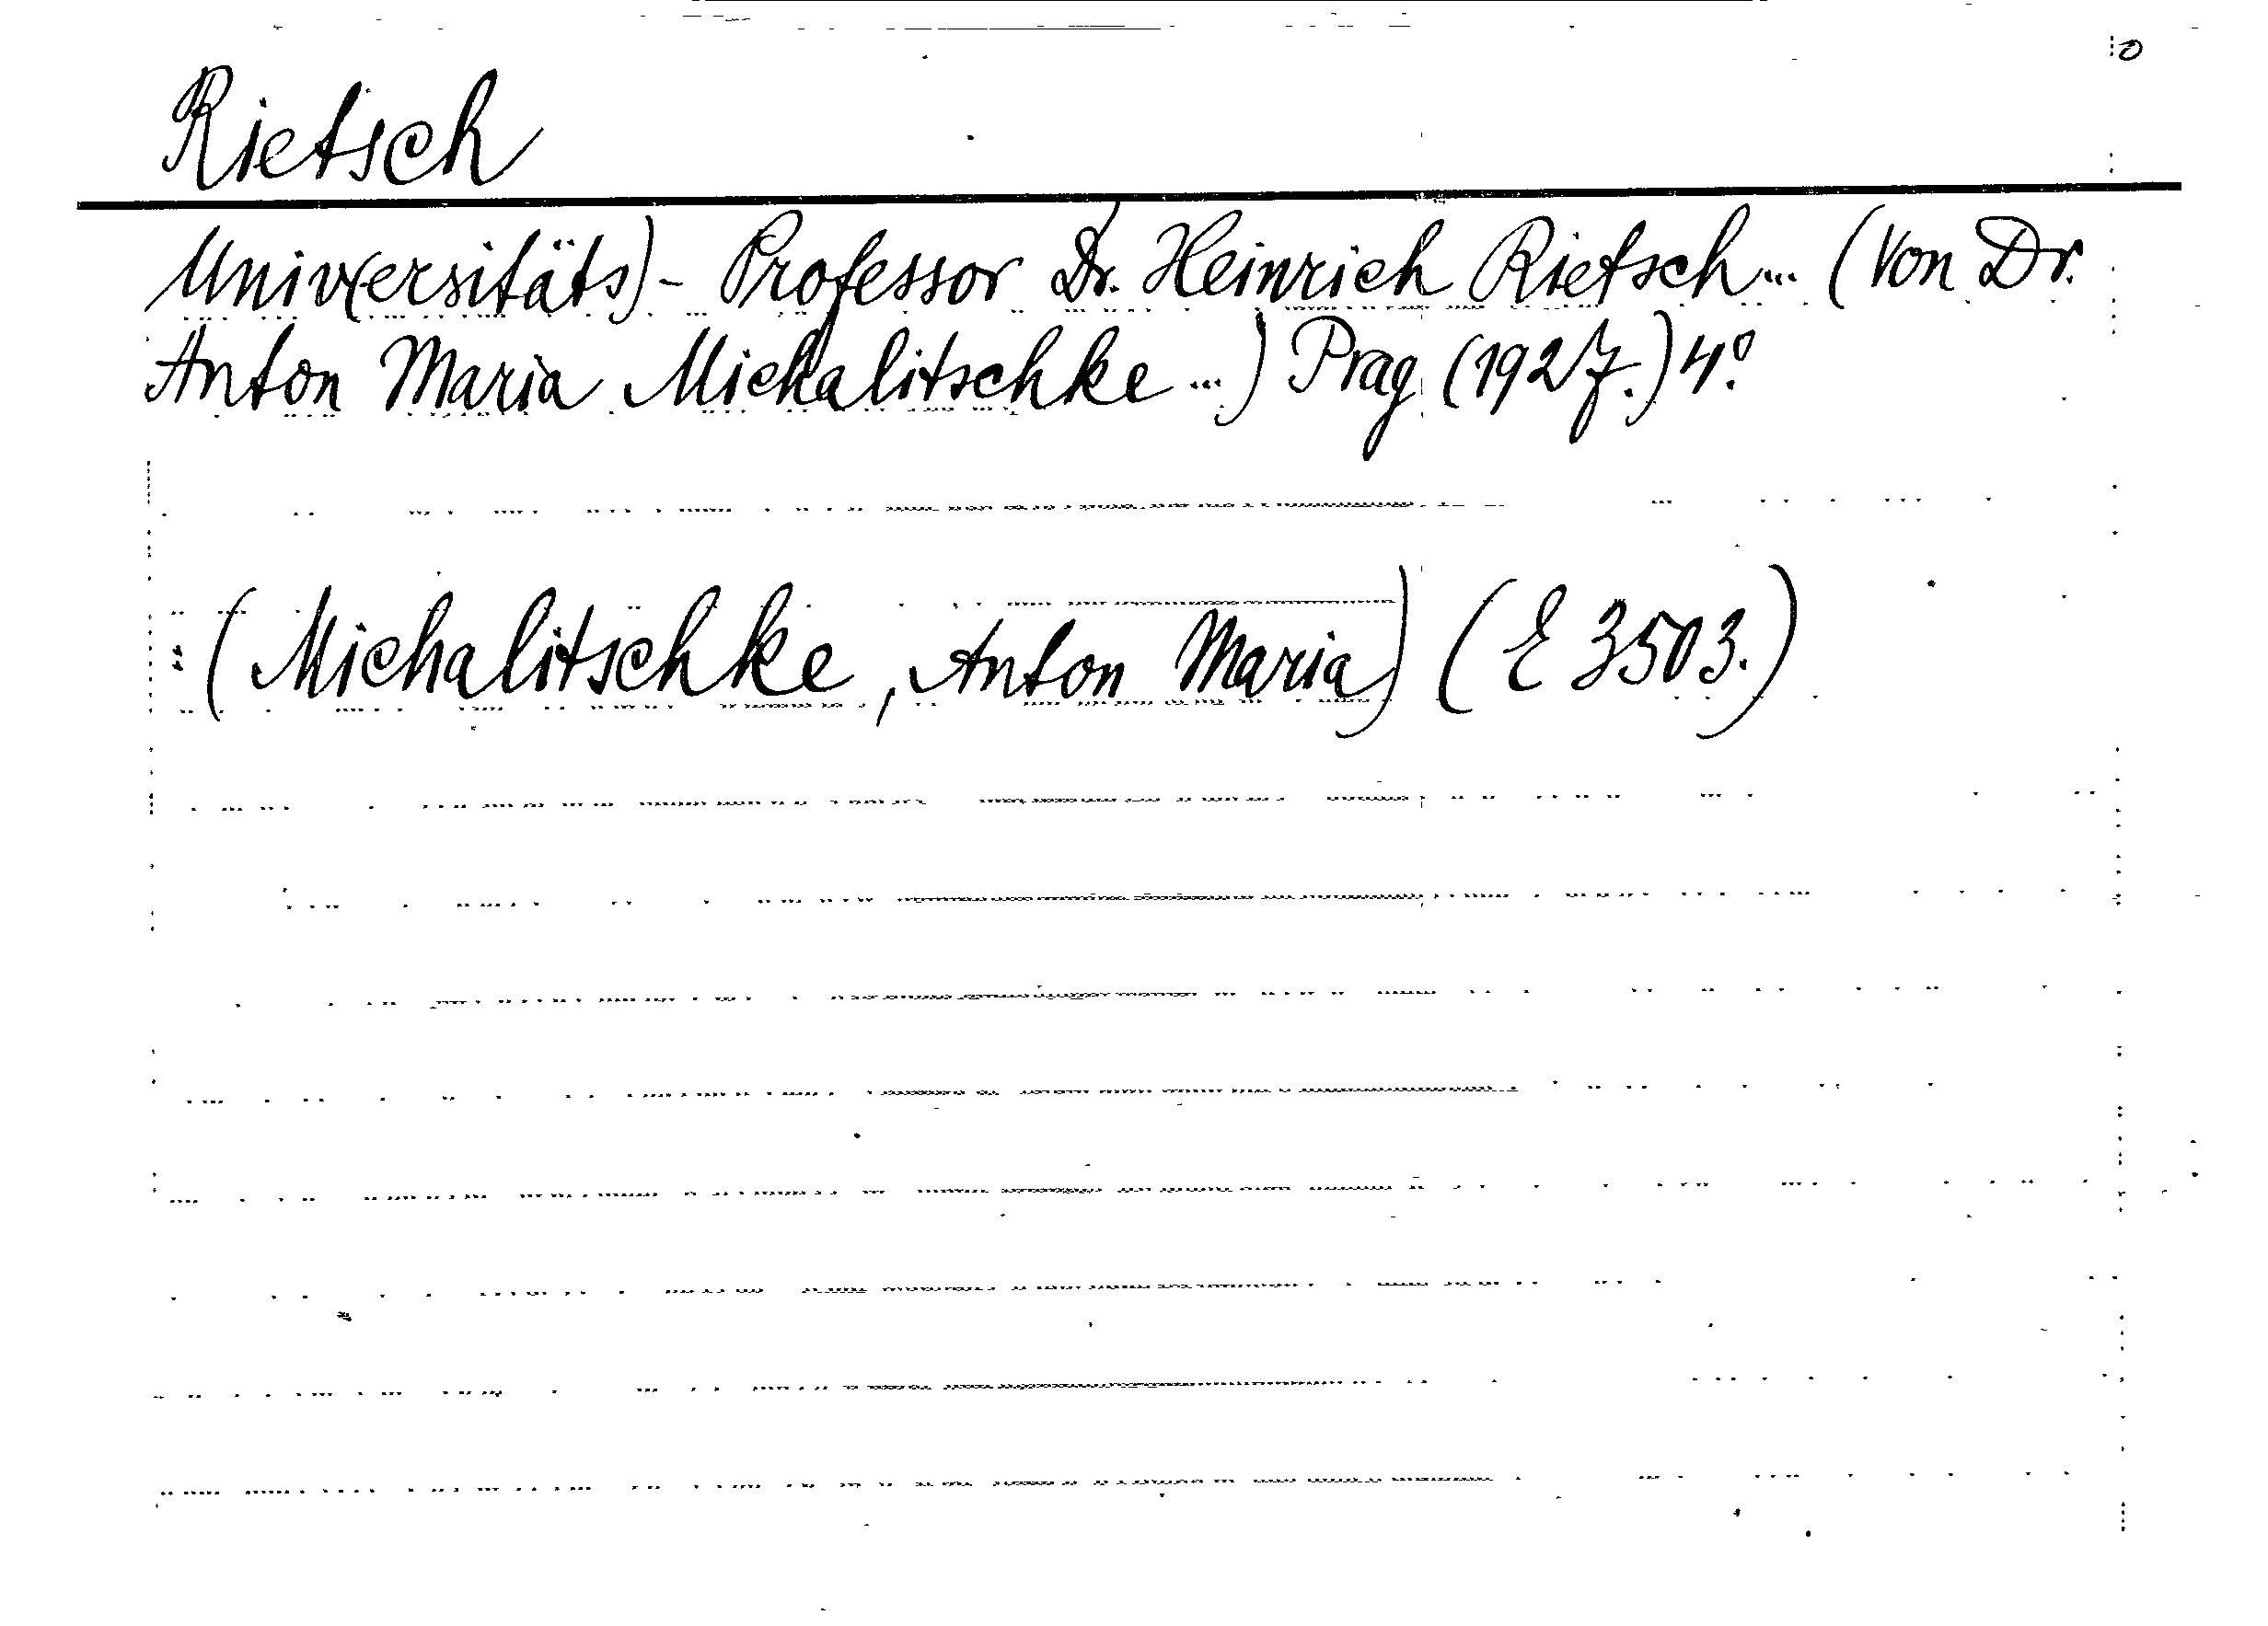 Rietsch
Univ(ersitäts)- Professor Dr. Heinrich Rietsch... (Von Dr.
Anton Maria Michalitschke...) Prag (1927.) 4°.
(Michalitschke, Anton Maria) (E 3503.)